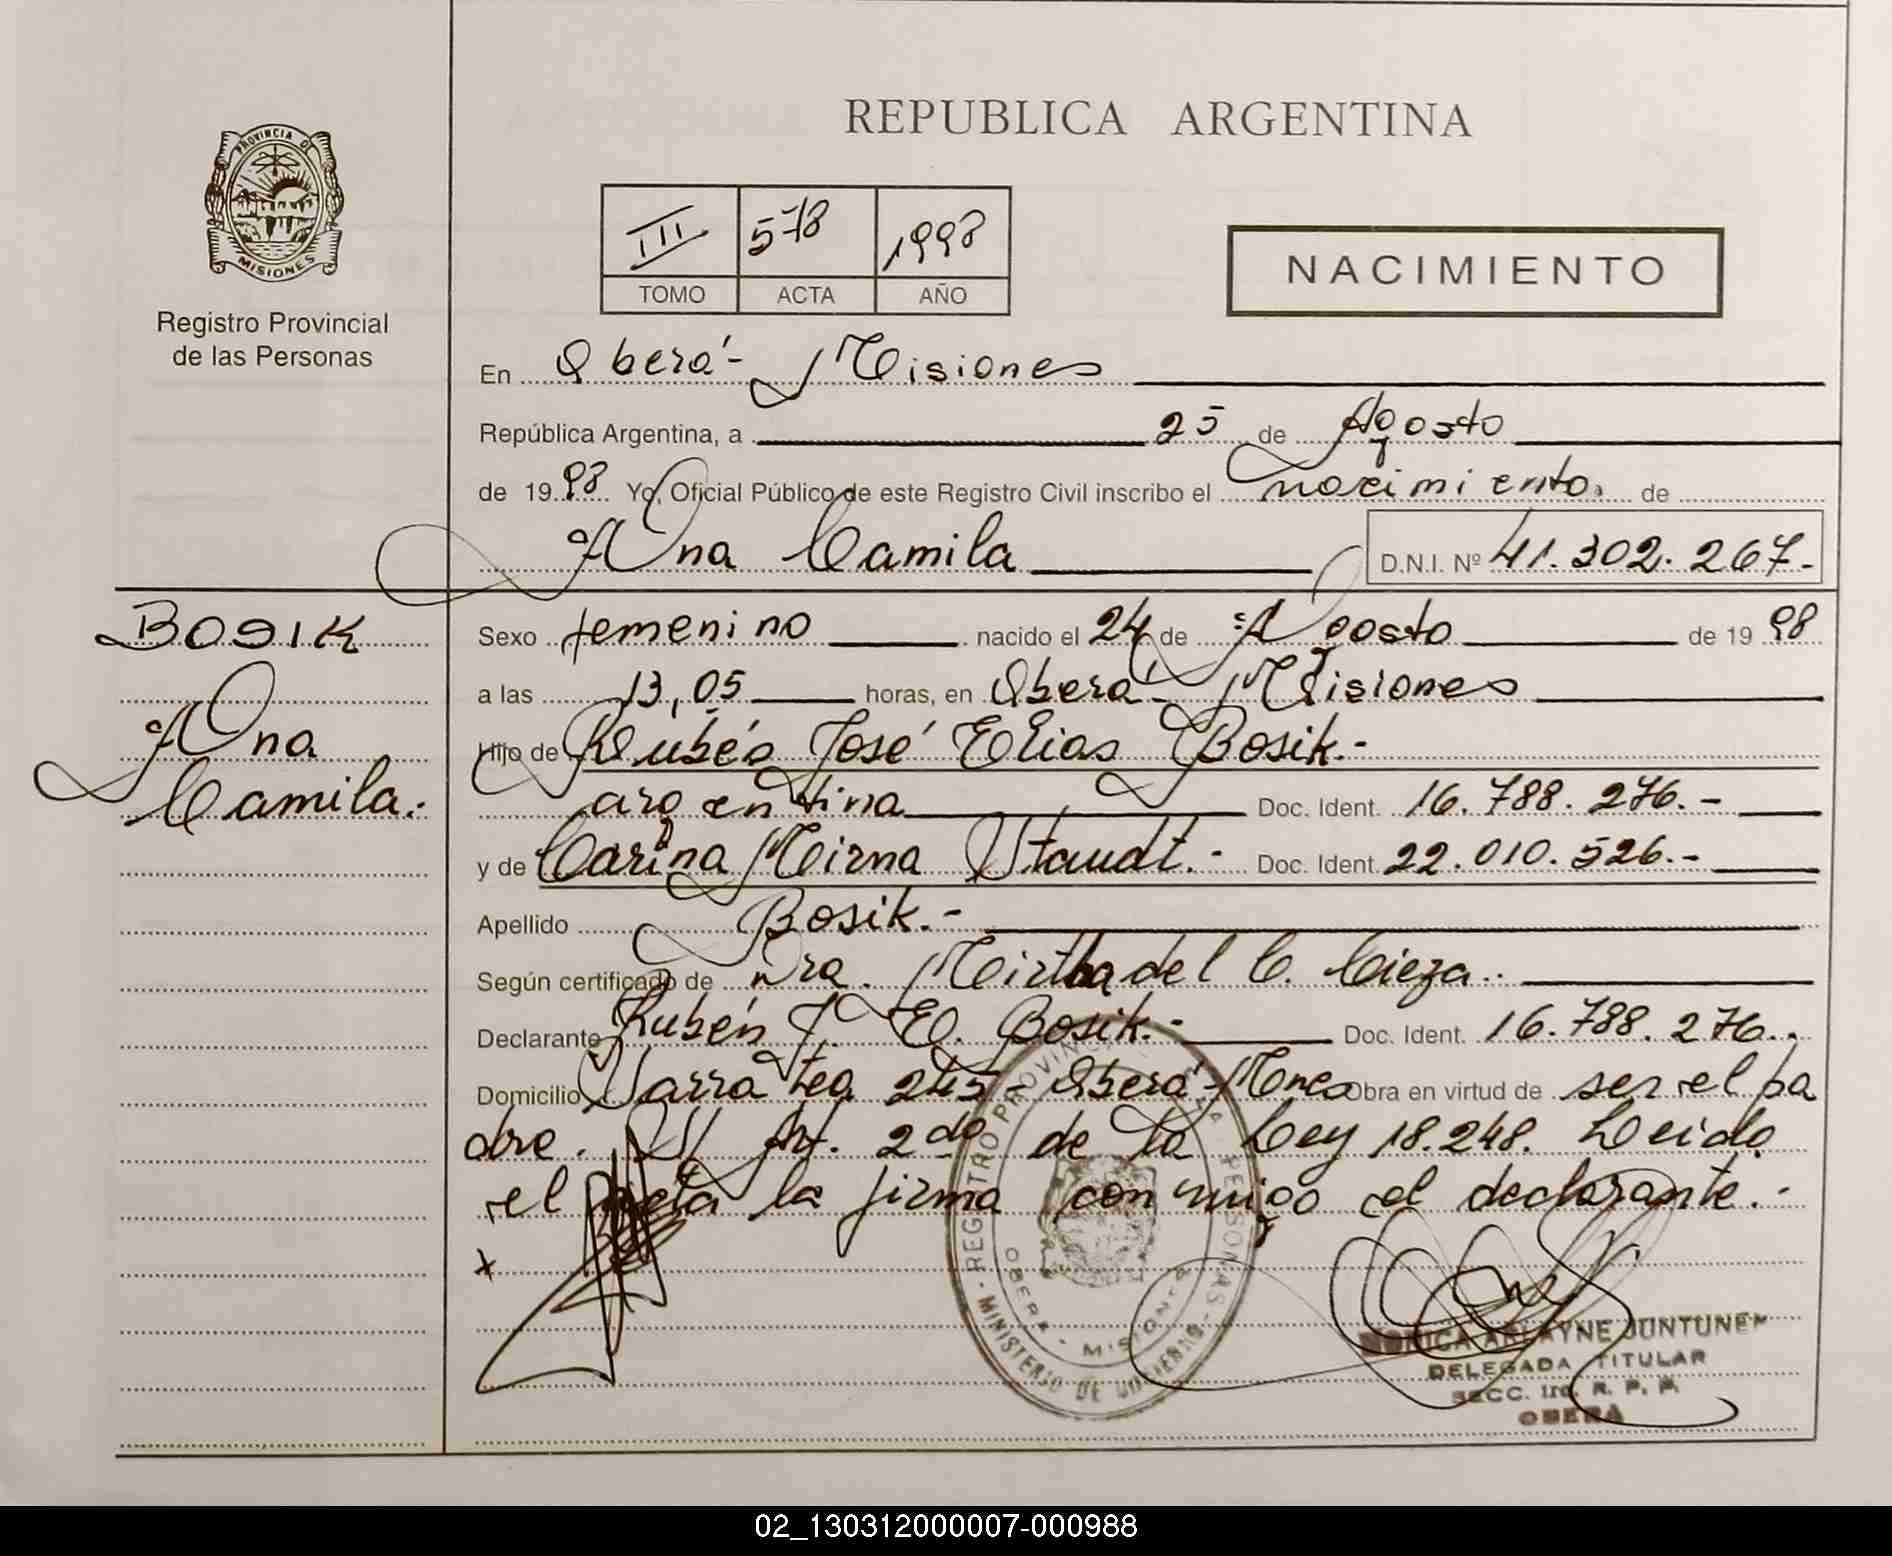 REPUBLICA ARGENTINA
PROVINCIA D
MISIONES
Registro Provincial
de las Personas
III 578 1998
TOMO ACTA AÑO
NACIMIENTO
En Oberá - Misiones
República Argentina, a 25 de Agosto
de 19 98 Yo, Oficial Público de este Registro Civil inscribo el nacimiento. de
Ana Camila D.N.I. Nº 41.302.267.-
BOSIK
Ana
Camila.
Sexo femenino nacido el 24 de Agosto de 19 98
a las 13,05 horas, en Oberá - Misiones
Hijo de Rubén José Elias Bosik.-
argentina Doc. Ident. 16.788.276.-
y de Carina Mirna Staudt.- Doc. Ident. 22.010.526.-
Apellido Bosik.-
Según certificado de Dra. Mirtha del C. Cieza.
Declarante Rubén J. E. Bosik.- Doc. Ident. 16.788.276..
Domicilio Sarratea 245 - Oberá - Mnes Obra en virtud de ser el pa
dre. S/ Art. 2do de la Ley 18.248. Leida
el acta la firma conmigo el declarante.-
x
REGISTRO PROVINCIAL PERSONAS
OBERA - MISIONES
MINISTERIO DE GOBIERNO
MONICA ARLAYNE JUNTUNEN
DELEGADA TITULAR
SECC. 1ra. R. P. P.
OBERA
02_130312000007-000988